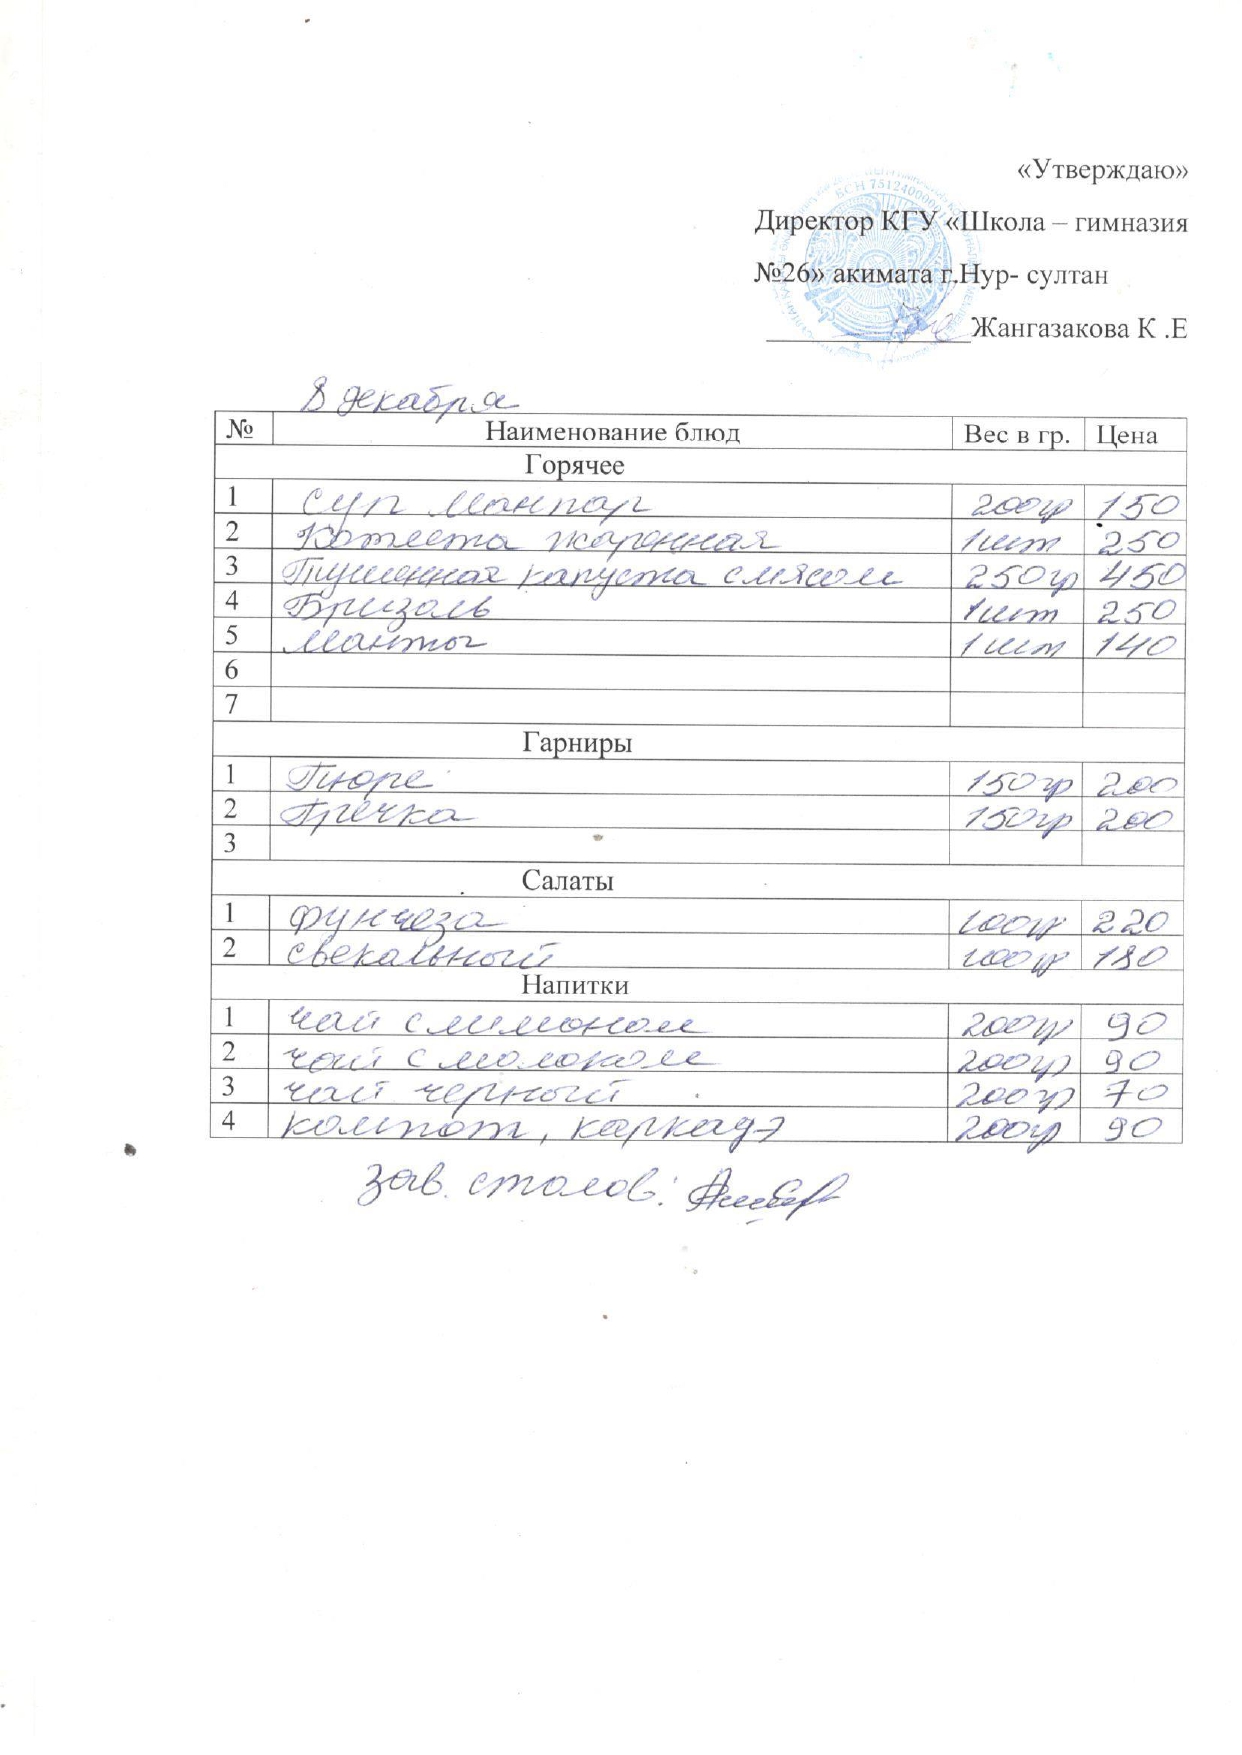 «Утверждаю»
Директор КГУ «Школа – гимназия
№26» акимата г.Нур- султан
Жангазакова К .Е
8 декабря
№ Наименование блюд Вес в гр. Цена
Горячее
1 Суп Манпар 200гр 150
2 Котлета жаренная 1шт 250
3 Тушенная капуста с мясом 250гр 450
4 Бризоль 1шт 250
5 Манты 1шт 140
6
7
Гарниры
1 Пюре 150гр 200
2 Гречка 150гр 200
3
Салаты
1 фунчеза 100гр 220
2 свекальный 100гр 180
Напитки
1 чай с лимоном 200гр 90
2 чай с молоком 200гр 90
3 чай черный 200гр 70
4 компот, каркадэ 200гр 90
зав. столов: